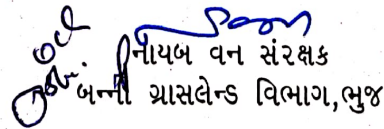 નાયબ વન સંરક્ષક
બન્ની ગ્રાસલેન્ડ વિભાગ,ભુજ